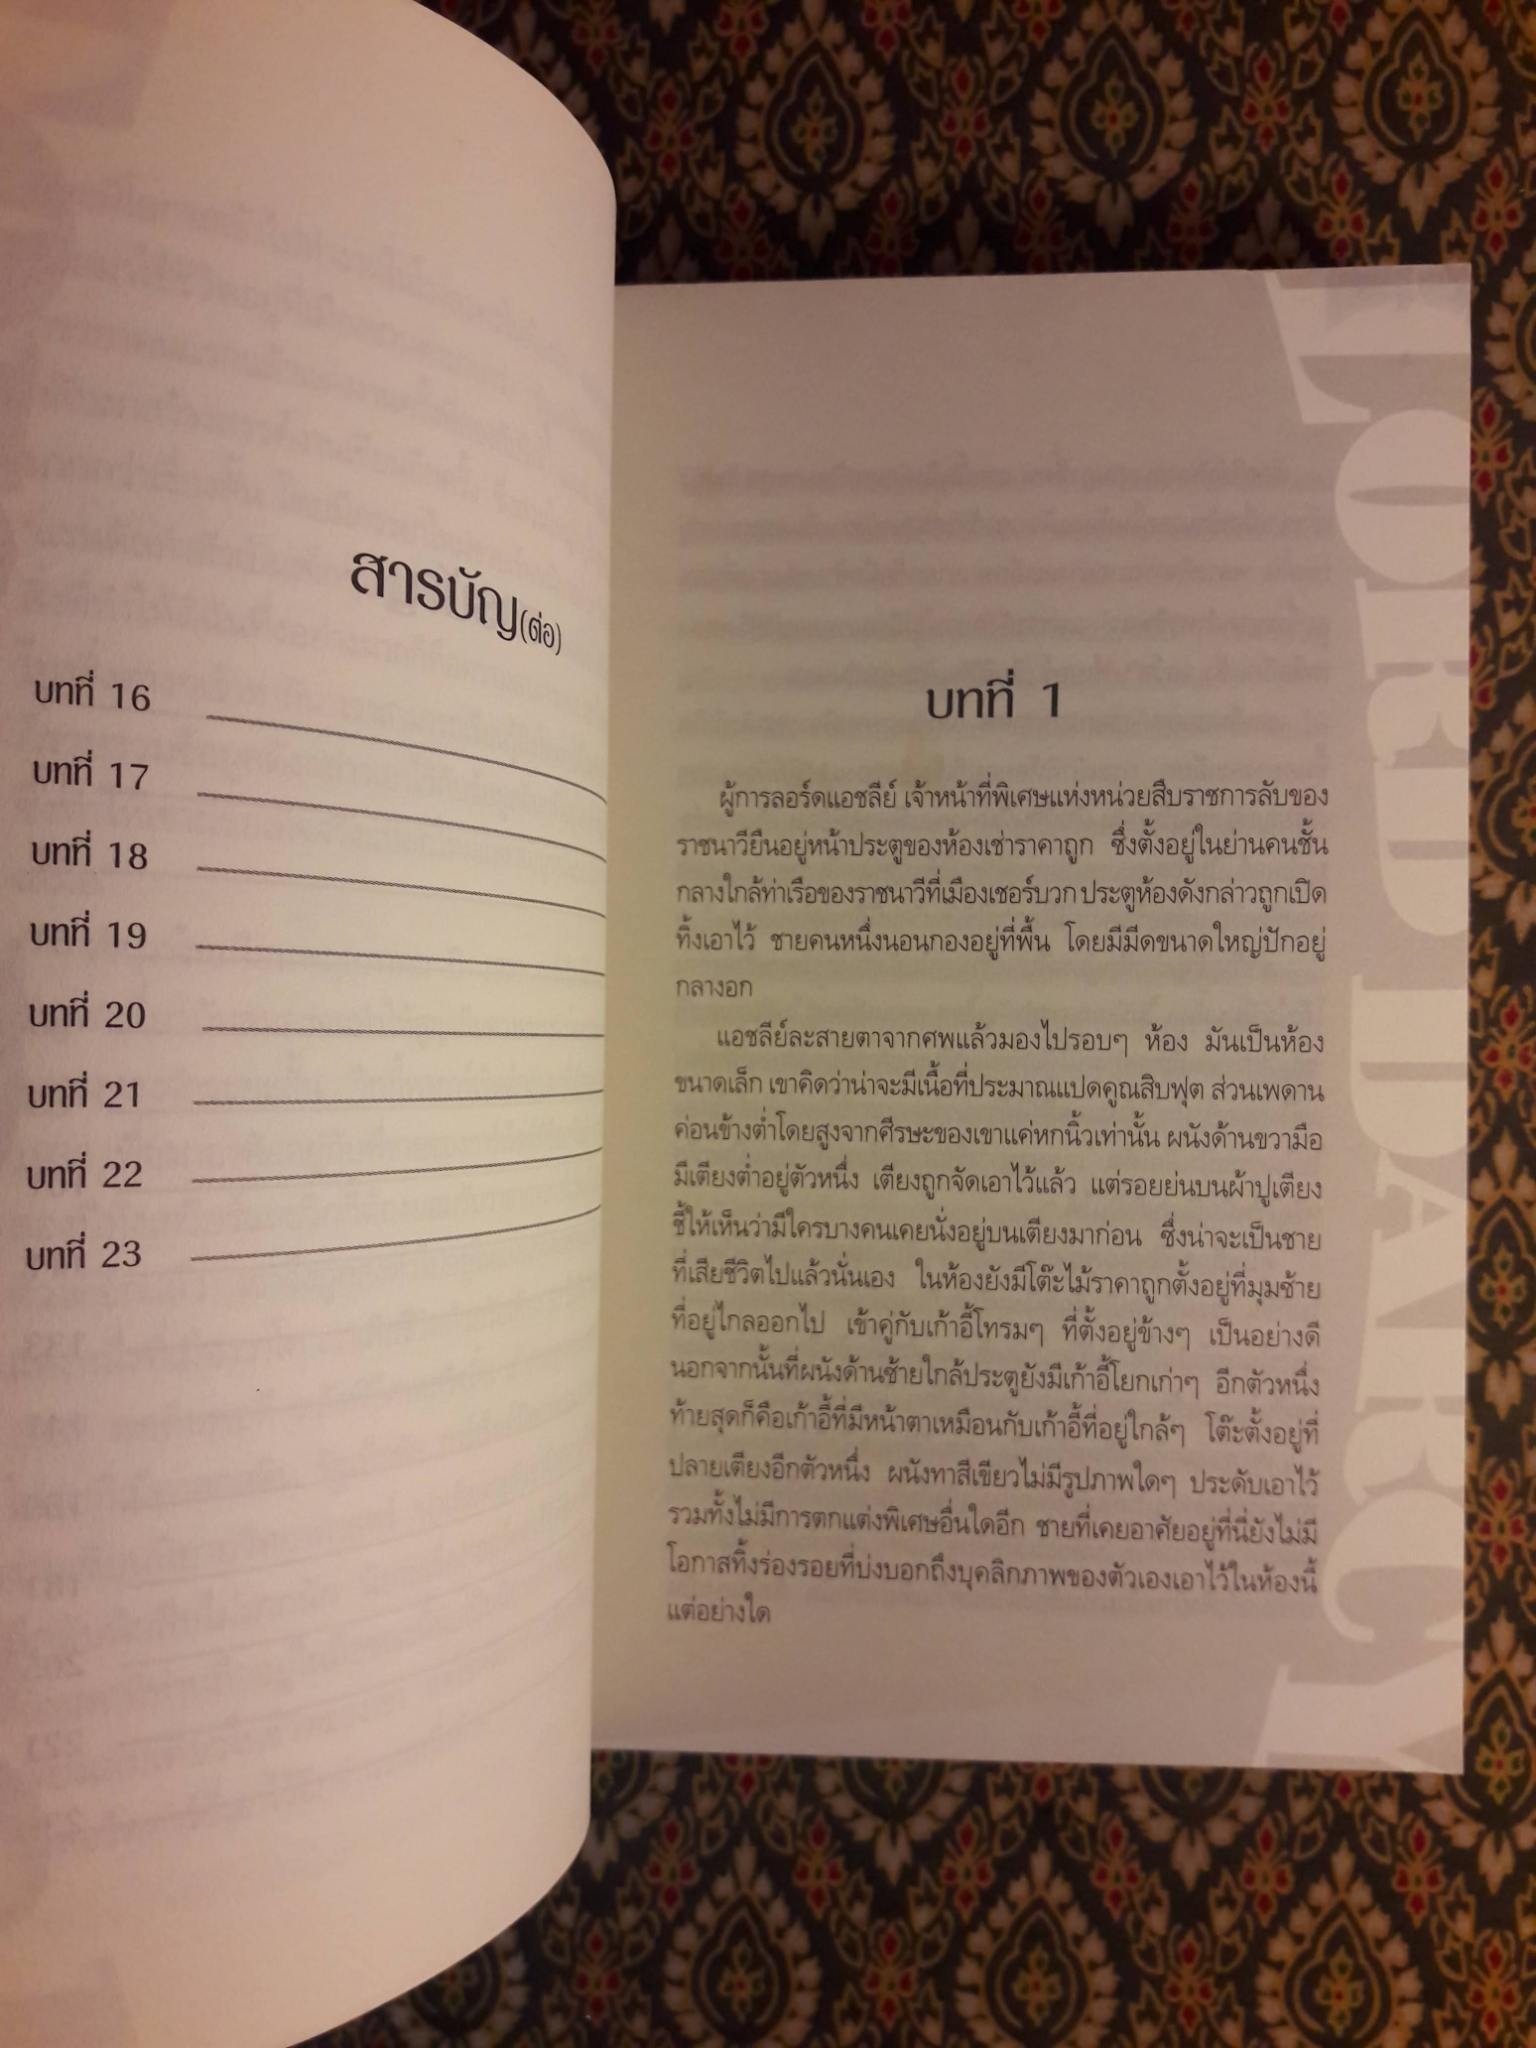 สารบัญ(ต่อ)
บทที่ 16
บทที่ 17
บทที่ 18
บทที่ 19
บทที่ 20
บทที่ 21
บทที่ 22
บทที่ 23
LORD DARCY
บทที่ 1
ผู้การลอร์ดแอชลีย์ เจ้าหน้าที่พิเศษแห่งหน่วยสืบราชการลับของ
ราชนาวียืนอยู่หน้าประตูของห้องเช่าราคาถูก ซึ่งตั้งอยู่ในย่านคนชั้น
กลางใกล้ท่าเรือของราชนาวีที่เมืองเชอร์บวก ประตูห้องดังกล่าวถูกเปิด
ทิ้งเอาไว้ ชายคนหนึ่งนอนกองอยู่ที่พื้น โดยมีมีดขนาดใหญ่ปักอยู่
กลางอก
แอชลีย์ละสายตาจากศพแล้วมองไปรอบๆ ห้อง มันเป็นห้อง
ขนาดเล็ก เขาคิดว่าน่าจะมีเนื้อที่ประมาณแปดคูณสิบฟุต ส่วนเพดาน
ค่อนข้างต่ำโดยสูงจากศีรษะของเขาแค่หกนิ้วเท่านั้น ผนังด้านขวามือ
มีเตียงต่ำอยู่ตัวหนึ่ง เตียงถูกจัดเอาไว้แล้ว แต่รอยย่นบนผ้าปูเตียง
ชี้ให้เห็นว่ามีใครบางคนเคยนั่งอยู่บนเตียงมาก่อน ซึ่งน่าจะเป็นชาย
ที่เสียชีวิตไปแล้วนั่นเอง ในห้องยังมีโต๊ะไม้ราคาถูกตั้งอยู่ที่มุมซ้าย
ที่อยู่ไกลออกไป เข้าคู่กับเก้าอี้โทรมๆ ที่ตั้งอยู่ข้างๆ เป็นอย่างดี
นอกจากนั้นที่ผนังด้านซ้ายใกล้ประตูยังมีเก้าอี้โยกเก่าๆ อีกตัวหนึ่ง
ท้ายสุดก็คือเก้าอี้ที่มีหน้าตาเหมือนกับเก้าอี้ที่อยู่ใกล้ๆ โต๊ะตั้งอยู่ที่
ปลายเตียงอีกตัวหนึ่ง ผนังทาสีเขียวไม่มีรูปภาพใดๆ ประดับเอาไว้
รวมทั้งไม่มีการตกแต่งพิเศษอื่นใดอีก ชายที่เคยอาศัยอยู่ที่นี่ยังไม่มี
โอกาสทิ้งร่องรอยที่บ่งบอกถึงบุคลิกภาพของตัวเองเอาไว้ในห้องนี้
แต่อย่างใด